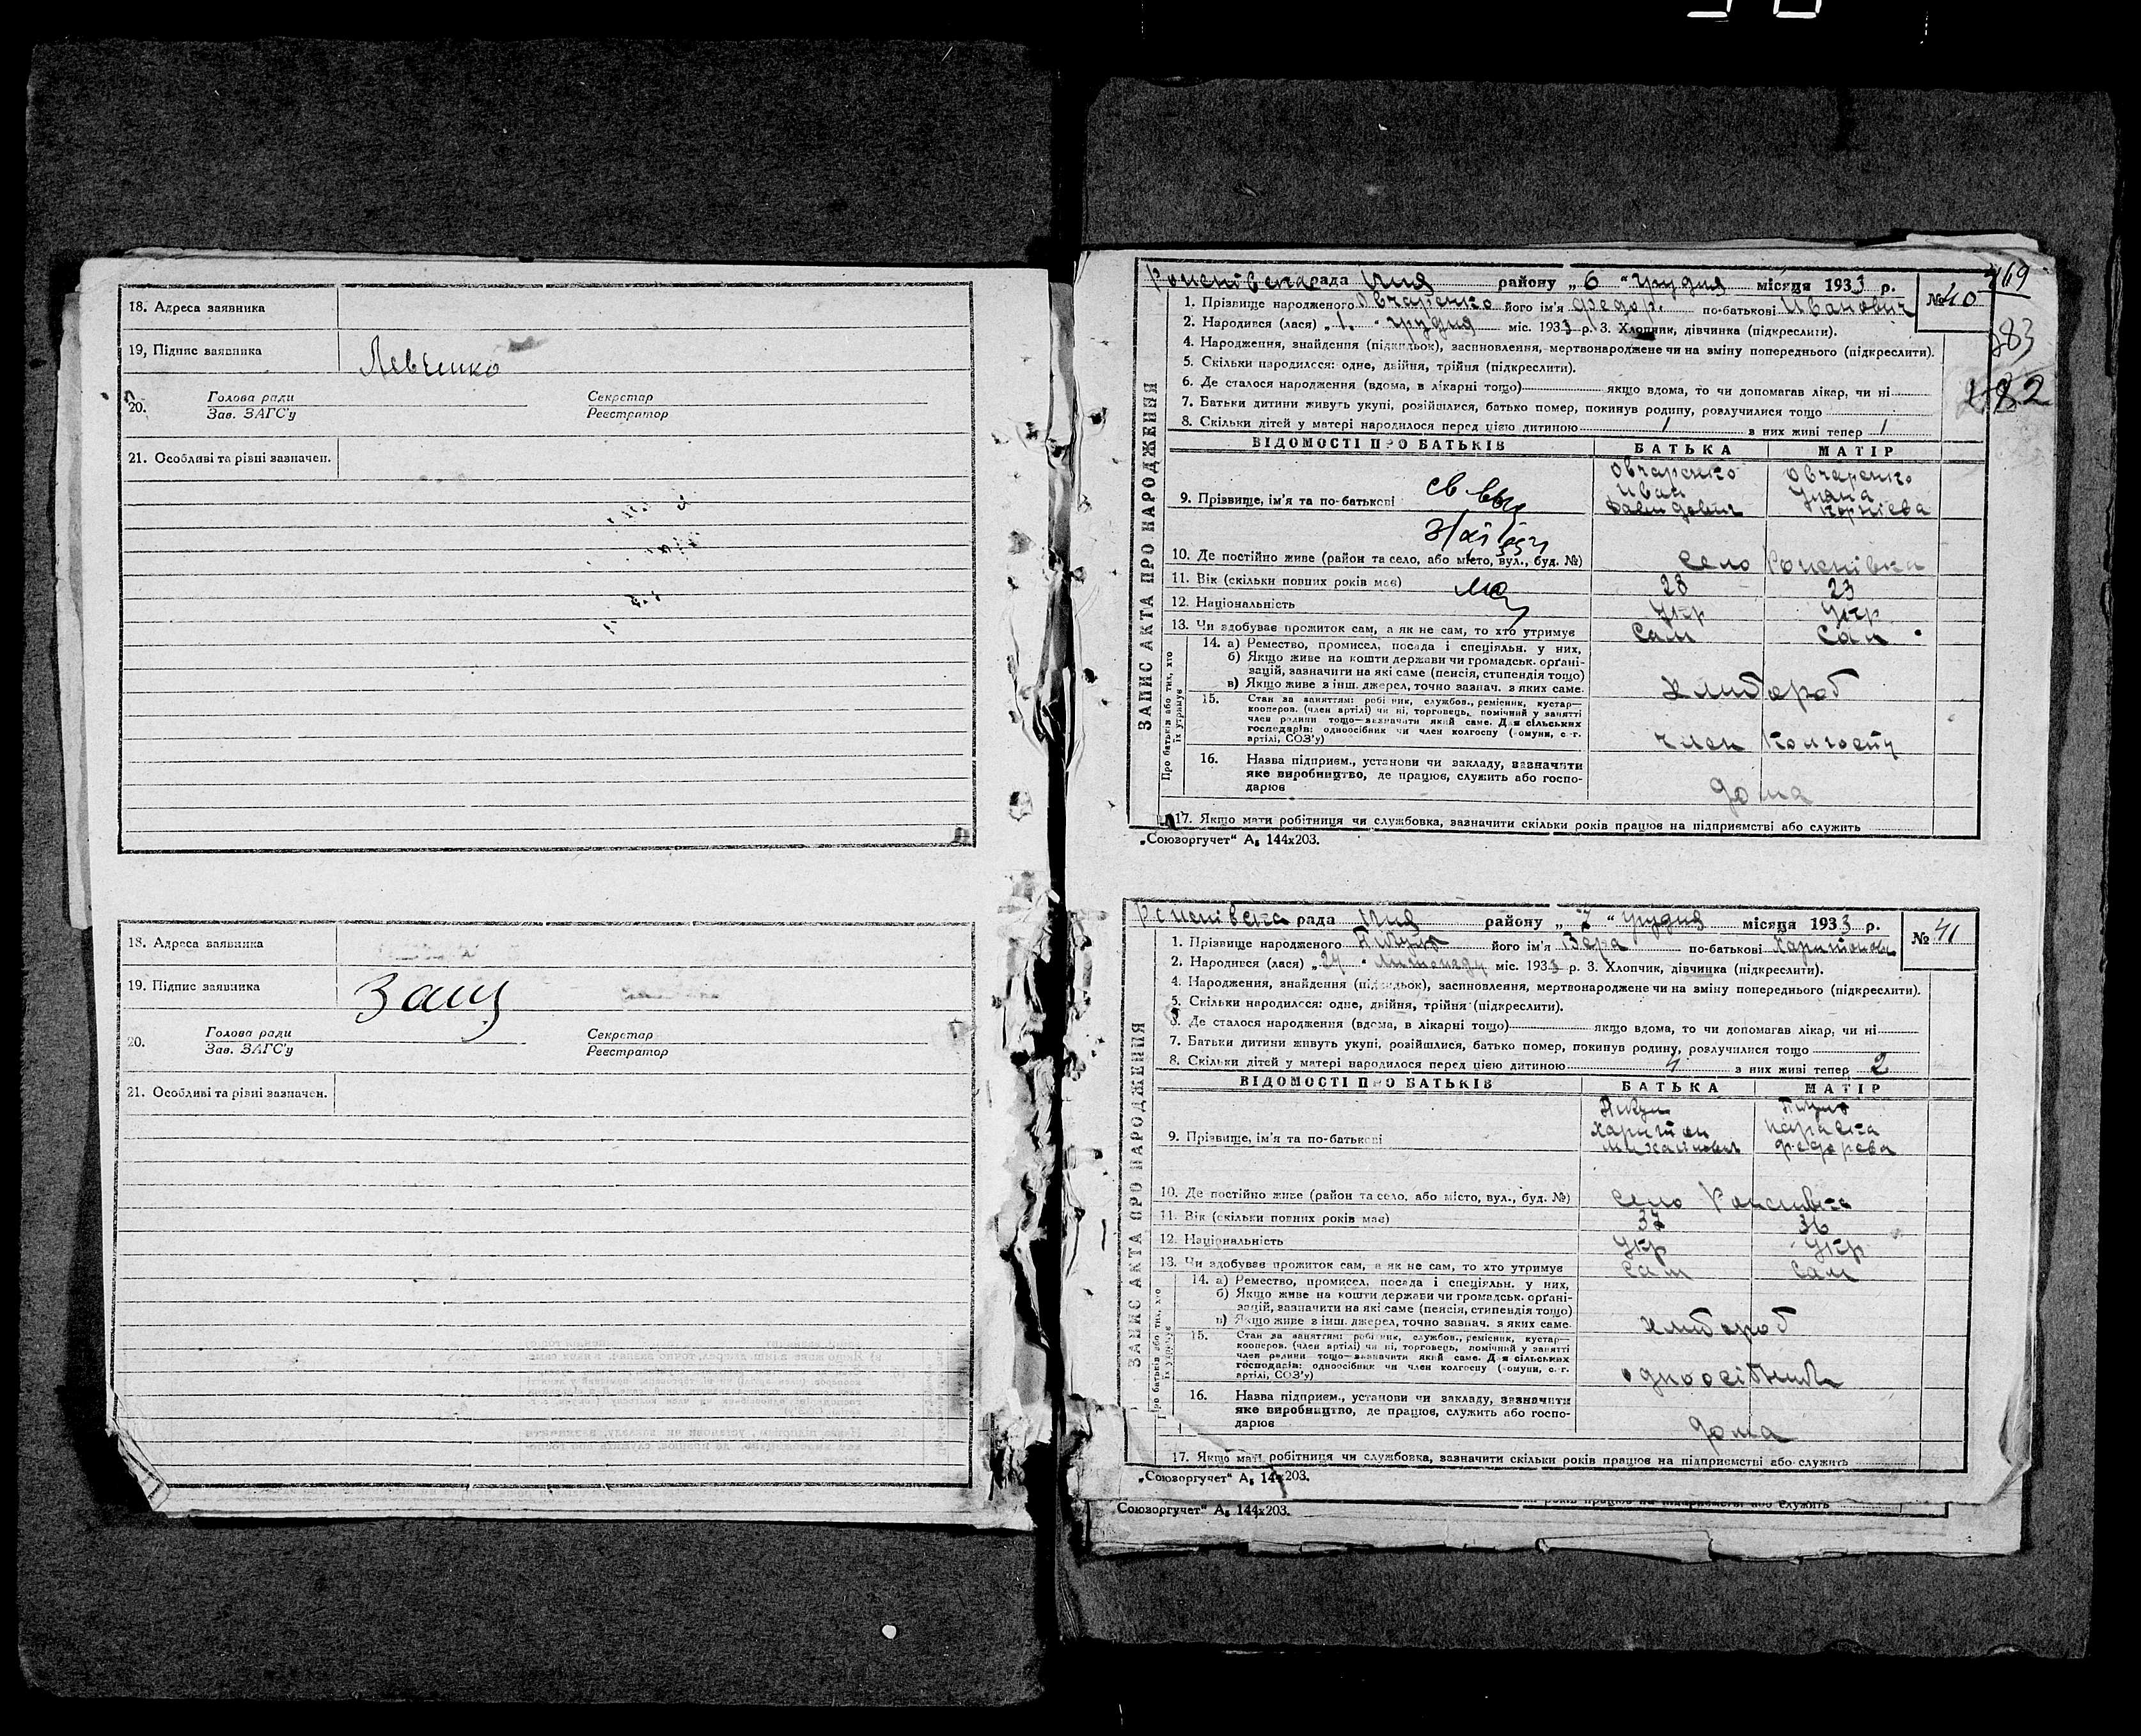 18. Адреса заявника
19, Підпис заявника Левченко
20. Голова ради Секретар
Зав. ЗАГС'у Реєстратор
21. Особливі та рівні зазначен.
18. Адреса заявника
19. Підпис заявника Заяц
20. Голова ради Секретар
Зав. ЗАГС'у Реєстратор
21. Особливі та рівні зазначен.
169
183
182
ЗАПИС АКТА ПРО НАРОДЖЕННЯ
рада району „ 6 “ грудня місяця 1933 р. № 40
1. Прізвище народженого Овчаренко його ім'я Федор. по-батькові Иванович
2. Народився (лася) „ 1. “ грудня міс. 1933 р. 3. Хлопчик, дівчинка (підкреслити).
4. Народження, знайдення (підкидьок), засиновлення, мертвонароджене чи на зміну попереднього (підкреслити).
5. Скільки народилося: одне, двійня, трійня (підкреслити).
6. Де сталося народження (вдома, в лікарні тощо) якщо вдома, то чи допомагав лікар, чи ні
7. Батьки дитини живуть укупі, розійшлися, батько помер, покинув родину, розлучилися тощо
8. Скільки дітей у матері народилося перед цією дитиною 1 з них живі тепер 1
ВІДОМОСТІ ПРО БАТЬКІВ БАТЬКА МАТІР
Овчаренко Овчаренко
9. Прізвище, ім'я та по-батькові Иван
Давидович
10. Де постійно живе (район та село, або місто, вул., буд. №) село
11. Вік (скільки повних років має) 28 23
12. Національність Укр Укр
13. Чи здобуває прожиток сам, а як не сам, то хто утримує Сам Сам
Про батьків або тих, хто їх утримує
14. а) Ремество, промисел, посада і спеціяльн. у них,
б) Якщо живе на кошти держави чи громадськ. органі-
зацій, зазначити на які саме (пенсія, стипендія тощо)
в) Якщо живе з інш. джерел, точно зазнач. з яких саме. хлибороб
15. Стан за заняттям: робітник, службов., ремісник, кустар—
кооперов. (член артілі) чи ні, торговець, помічний у занятті
член родини тощо—зазначити який саме. Для сільських
господарів: одноосібник чи член колгоспу (комуни, с.-г.
артілі, СОЗ'у) член колгоспу
16. Назва підприєм., установи чи закладу, зазначити
яке виробництво, де працює, служить або госпо-
дарює дома
17. Якщо мати робітниця чи службовка, зазначити скільки років працює на підприємстві або служить
„Союзоргучет“ А₅ 144х203.
ЗАПИС АКТА ПРО НАРОДЖЕННЯ
рада району „ 7 “ грудня місяця 1933 р. № 41
1. Прізвище народженого його ім'я Вера по-батькові
2. Народився (лася) „ 24 “ листопаду міс. 1933 р. 3. Хлопчик, дівчинка (підкреслити).
4. Народження, знайдення (підкидьок), засиновлення, мертвонароджене чи на зміну попереднього (підкреслити).
5. Скільки народилося: одне, двійня, трійня (підкреслити).
6. Де сталося народження (вдома, в лікарні тощо) якщо вдома, то чи допомагав лікар, чи ні
7. Батьки дитини живуть укупі, розійшлися, батько помер, покинув родину, розлучилися тощо
8. Скільки дітей у матері народилося перед цією дитиною 4 з них живі тепер 2
ВІДОМОСТІ ПРО БАТЬКІВ БАТЬКА МАТІР
9. Прізвище, ім'я та по-батькові Харитон Параска
Михайлович Федорова
10. Де постійно живе (район та село, або місто, вул., буд. №) село
11. Вік (скільки повних років має) 37 36
12. Національність Укр Укр
13. Чи здобуває прожиток сам, а як не сам, то хто утримує Сам Сам
Про батьків або тих, хто їх утримує
14. а) Ремество, промисел, посада і спеціяльн. у них,
б) Якщо живе на кошти держави чи громадськ. органі-
зацій, зазначити на які саме (пенсія, стипендія тощо)
в) Якщо живе з інш. джерел, точно зазнач. з яких саме. хлибороб
15. Стан за заняттям: робітник, службов., ремісник, кустар—
кооперов. (член артілі) чи ні, торговець, помічний у занятті
член родини тощо—зазначити який саме. Для сільських
господарів: одноосібник чи член колгоспу (комуни, с.-г.
артілі, СОЗ'у) одноосібник
16. Назва підприєм., установи чи закладу, зазначити
яке виробництво, де працює, служить або госпо-
дарює дома
17. Якщо маті робітниця чи службовка, зазначити скільки років працює на підприємстві або служить
„Союзоргучет“ А₅ 144х203.
Союзоргучет“ А₅ 144х203.